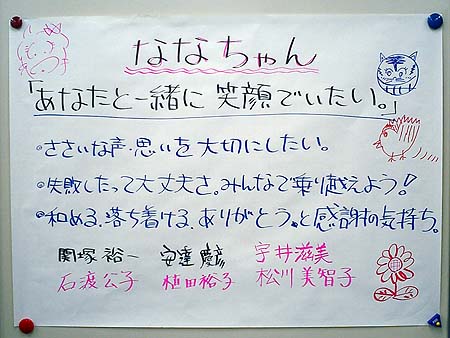 ななちゃん
「あなたと一緒に笑顔でいたい。」
・ささいな声・思いを大切にしたい。
・失敗したって大丈夫さ。みんなで乗り越えよう!
・和める、落ち着ける、ありがとう。と感謝の気持ち。
関塚裕一 安達慶彦 宇井滋美
石渡公子 植田裕子 松川美智子